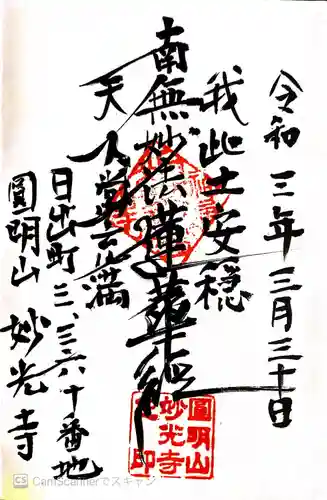 令和三年三月三十日
我此土安穏
南無妙法蓮華経
天人常充満
日出町三、三六十番地
圓明山 妙光寺
圓明山
妙光寺
印
CS CamScannerでスキャン